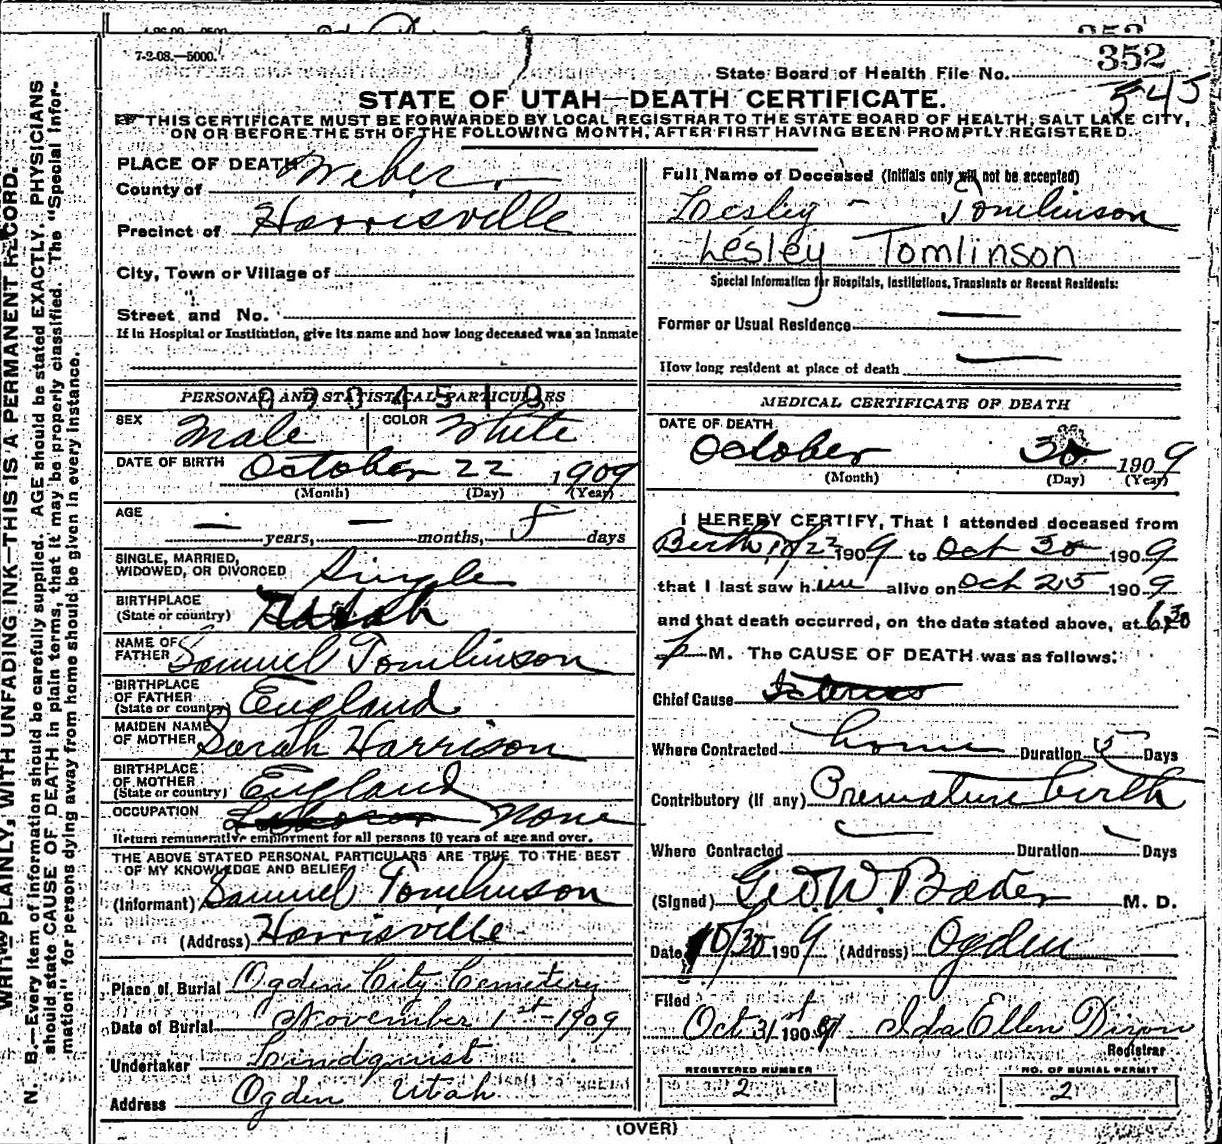 352
7-2-08.—5000.
State Board of Health File No.
352
545
STATE OF UTAH—DEATH CERTIFICATE.
THIS CERTIFICATE MUST BE FORWARDED BY LOCAL REGISTRAR TO THE STATE BOARD OF HEALTH, SALT LAKE CITY,
ON OR BEFORE THE 5TH OF THE FOLLOWING MONTH, AFTER FIRST HAVING BEEN PROMPTLY REGISTERED.
WRITE PLAINLY, WITH UNFADING INK—THIS IS A PERMANENT RECORD.
N. B.—Every item of information should be carefully supplied. AGE should be stated EXACTLY. PHYSICIANS
should state CAUSE OF DEATH in plain terms, that it may be properly classified. The "Special Infor-
mation" for persons dying away from home should be given in every instance.
PLACE OF DEATH
County of Weber
Precinct of Harrisville
City, Town or Village of
Street and No.
If in Hospital or Institution, give its name and how long deceased was an inmate
PERSONAL AND STATISTICAL PARTICULARS
SEX Male COLOR White
DATE OF BIRTH October 22 1909
(Month) (Day) (Year)
AGE — years, — months, 5 days
SINGLE, MARRIED,
WIDOWED, OR DIVORCED Single
BIRTHPLACE
(State or country) Utah
NAME OF
FATHER Samuel Tomlinson
BIRTHPLACE
OF FATHER
(State or country) England
MAIDEN NAME
OF MOTHER Sarah Harrison
BIRTHPLACE
OF MOTHER
(State or country) England
OCCUPATION None
Return remunerative employment for all persons 10 years of age and over.
THE ABOVE STATED PERSONAL PARTICULARS ARE TRUE TO THE BEST
OF MY KNOWLEDGE AND BELIEF
(Informant) Samuel Tomlinson
(Address) Harrisville
Place of Burial Ogden City Cemetery
Date of Burial November 1st-1909
Undertaker Lindquist
Address Ogden Utah
Full Name of Deceased (Initials only will not be accepted)
Lesley - Tomlinson
Lesley Tomlinson
Special Information for Hospitals, Institutions, Transients or Recent Residents:
Former or Usual Residence —
How long resident at place of death —
MEDICAL CERTIFICATE OF DEATH
DATE OF DEATH
October 30 1909
(Month) (Day) (Year)
I HEREBY CERTIFY, That I attended deceased from
Birth 10/22 1909 to Oct 30 1909
that I last saw him alive on Oct 25 1909
and that death occurred, on the date stated above, at 6.30
P M. The CAUSE OF DEATH was as follows:
Chief Cause Icterus
Where Contracted home Duration 5 Days
Contributory (If any) Premature birth
Where Contracted Duration Days
(Signed) Geo. W. Baker M. D.
Date 10/30 1909 (Address) Ogden
Filed
Oct 31st 1909 Ida Ellen Dixon
Registrar
REGISTERED NUMBER
2
NO. OF BURIAL PERMIT
2
(OVER)